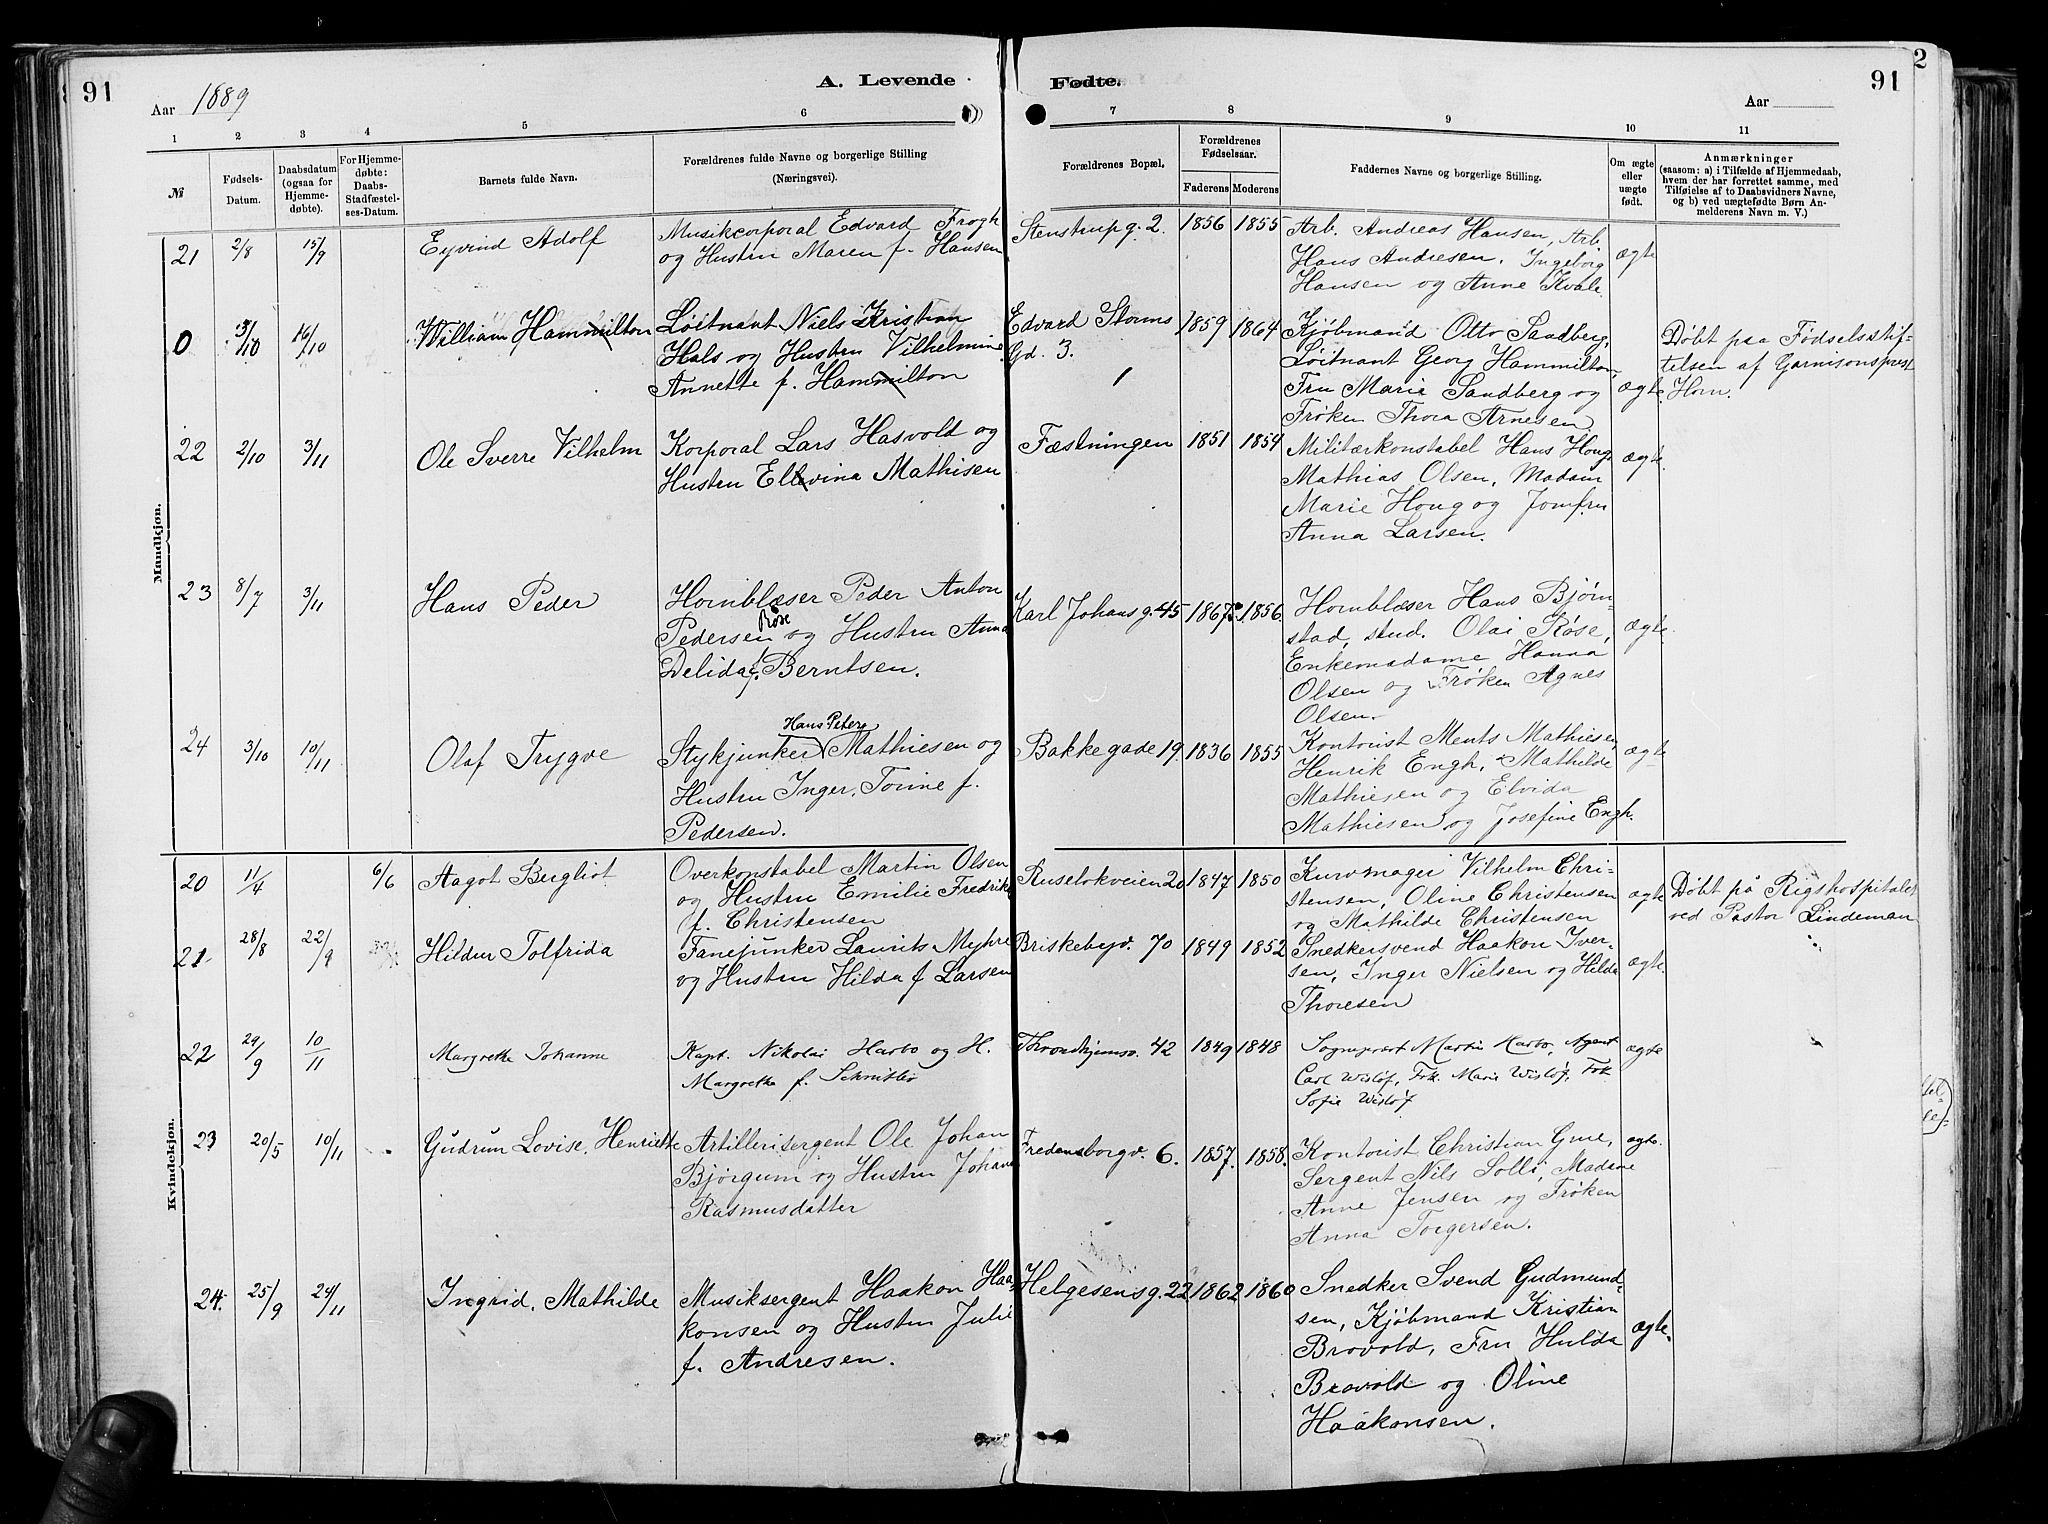 91
Aar 1889
A. Levende
Fødte.
91
2
Aar
1 2 3 4 5 6 7 8 9 10 11
№
Fødsels-
Datum.
Daabsdatum
(ogsaa for
Hjemme-
døbte).
For Hjemme-
døbte:
Daabs-
Stadfæstel-
ses-Datum.
Barnets fulde Navn.
Forældrenes fulde Navne og borgerlige Stilling
(Næringsvei).
Forældrenes Bopæl.
Forældrenes
Fødselsaar.
Faderens Moderens
Faddernes Navne og borgerlige Stilling.
Om ægte
eller
uægte
født.
Anmærkninger
(saasom: a) i Tilfælde af Hjemmedaab,
hvem der har forrettet samme, med
Tilføielse af to Daabsvidners Navne,
og b) ved uægtefødte Børn An-
melderens Navn m. V.)
Mandkjøn.
21 2/8 15/9 Eyvind Adolf
Musikcorporal Edvard Frogh
og Hustru Maren f. Hansen
Stenstrupg. 2. 1856 1855
Arb. Andreas Hansen, Arb.
Hans Andresen, Ingeborg
Hansen og Anne Kvale.
ægte
0 3/10 16/10 William Hammilton
Løitnant Niels Kristian
Hals og Hustru Vilhelmine
Annette f. Hammilton
Edvard Storms
Gd. 3.
1859 1864
Kjøbmand Otto Sandberg,
Løitnant Georg Hammilton,
Fru Marie Sandberg og
Frøken Thora Arnesen
ægte
Døbt paa Fødselsstif-
telsen af Garnisonsprest
Horn.
22 2/10 3/11 Ole Sverre Vilhelm
Korporal Lars Hasvold og
Hustru Ellevina Mathisen
Fæstningen 1851 1854
Militærkonstabel Hans Houg
Mathias Olsen, Madam
Marie Houg og Jomfru
Anna Larsen.
ægte.
23 8/7 3/11 Hans Peder
Hornblæser Peder Anton
Pedersen Røse og Hustru Anna
Delida f. Berntsen.
Karl Johans g. 45 1867 1856.
Hornblæser Hans Bjørn-
stad, stud. Olai Røse,
Enkemadame Hanna
Olsen og Frøken Agnes
Olsen.
ægte.
24 3/10 10/11 Olaf Trygve
Hans Peter
Stykjunker Mathiesen og
Hustru Inger Tonine f.
Pedersen.
Bakkegade 19. 1836 1855
Kontorist Ments Mathiesen,
Henrik Engh, Mathilde
Mathiesen og Elvida
Mathiesen og Josefine Engh.
ægte
Kvindekjøn.
20 11/4 6/6 Aagot Bergliot
Overkonstabel Martin Olsen
og Hustru Emilie Fredrikke
f. Christensen
Ruseløkveien 20 1847 1850
Kurvmager Vilhelm Chri-
stensen, Oline Christensen
og Mathilde Christensen
ægte
Døbt på Rigshospitalet
ved Pastor Lindeman
21 28/8 22/9 Hildur Tolfrida
Fanejunker Laurits Myhre
og Hustru Hilda f Larsen
Briskebyv. 70 1849 1852
Snedkersvend Haakon Iver-
sen, Inger Nielsen og Hilda
Thoresen
ægte.
22 29/9 10/11 Margrethe Johanne
Kapt. Nikolai Harbo og H.
Margrethe f. Schnitler
Throndhjemsv. 42 1849 1848
Sogneprest Martin Harbo, Agent
Carl Wisløf, Frk. Marie Wisløf, Frk
Sofie Wisløf
ægte
23 20/5 10/11 Gudrun Lovise Henriette
Artillerisergent Ole Johan
Bjørgum og Hustru Johane
Rasmusdatter
Fredensborgv. 6. 1857. 1858.
Kontorist Christian Grue,
Sergent Nils Solli, Madame
Anne Jensen og Frøken
Anna Torgersen.
ægte.
24. 25/9 24/11 Ingrid Mathilde
Musiksergent Haakon Haa-
konsen og Hustru Julie
f. Andresen.
Helgesensg. 22 1862 1860
Snedker Svend Gudmund-
sen, Kjøbmand Kristian
Brovold, Fru Hulda
Brovold og Oline
Haakonsen.
ægte.